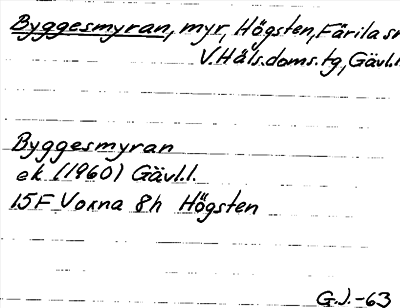 Byggesmyran, myr, Högsten, Färila sn
V. Häls. doms. tg, Gävl. l
Byggesmyran
ek (1960) Gävl. l.
15F Voxna 8h Högsten
G.J.-63